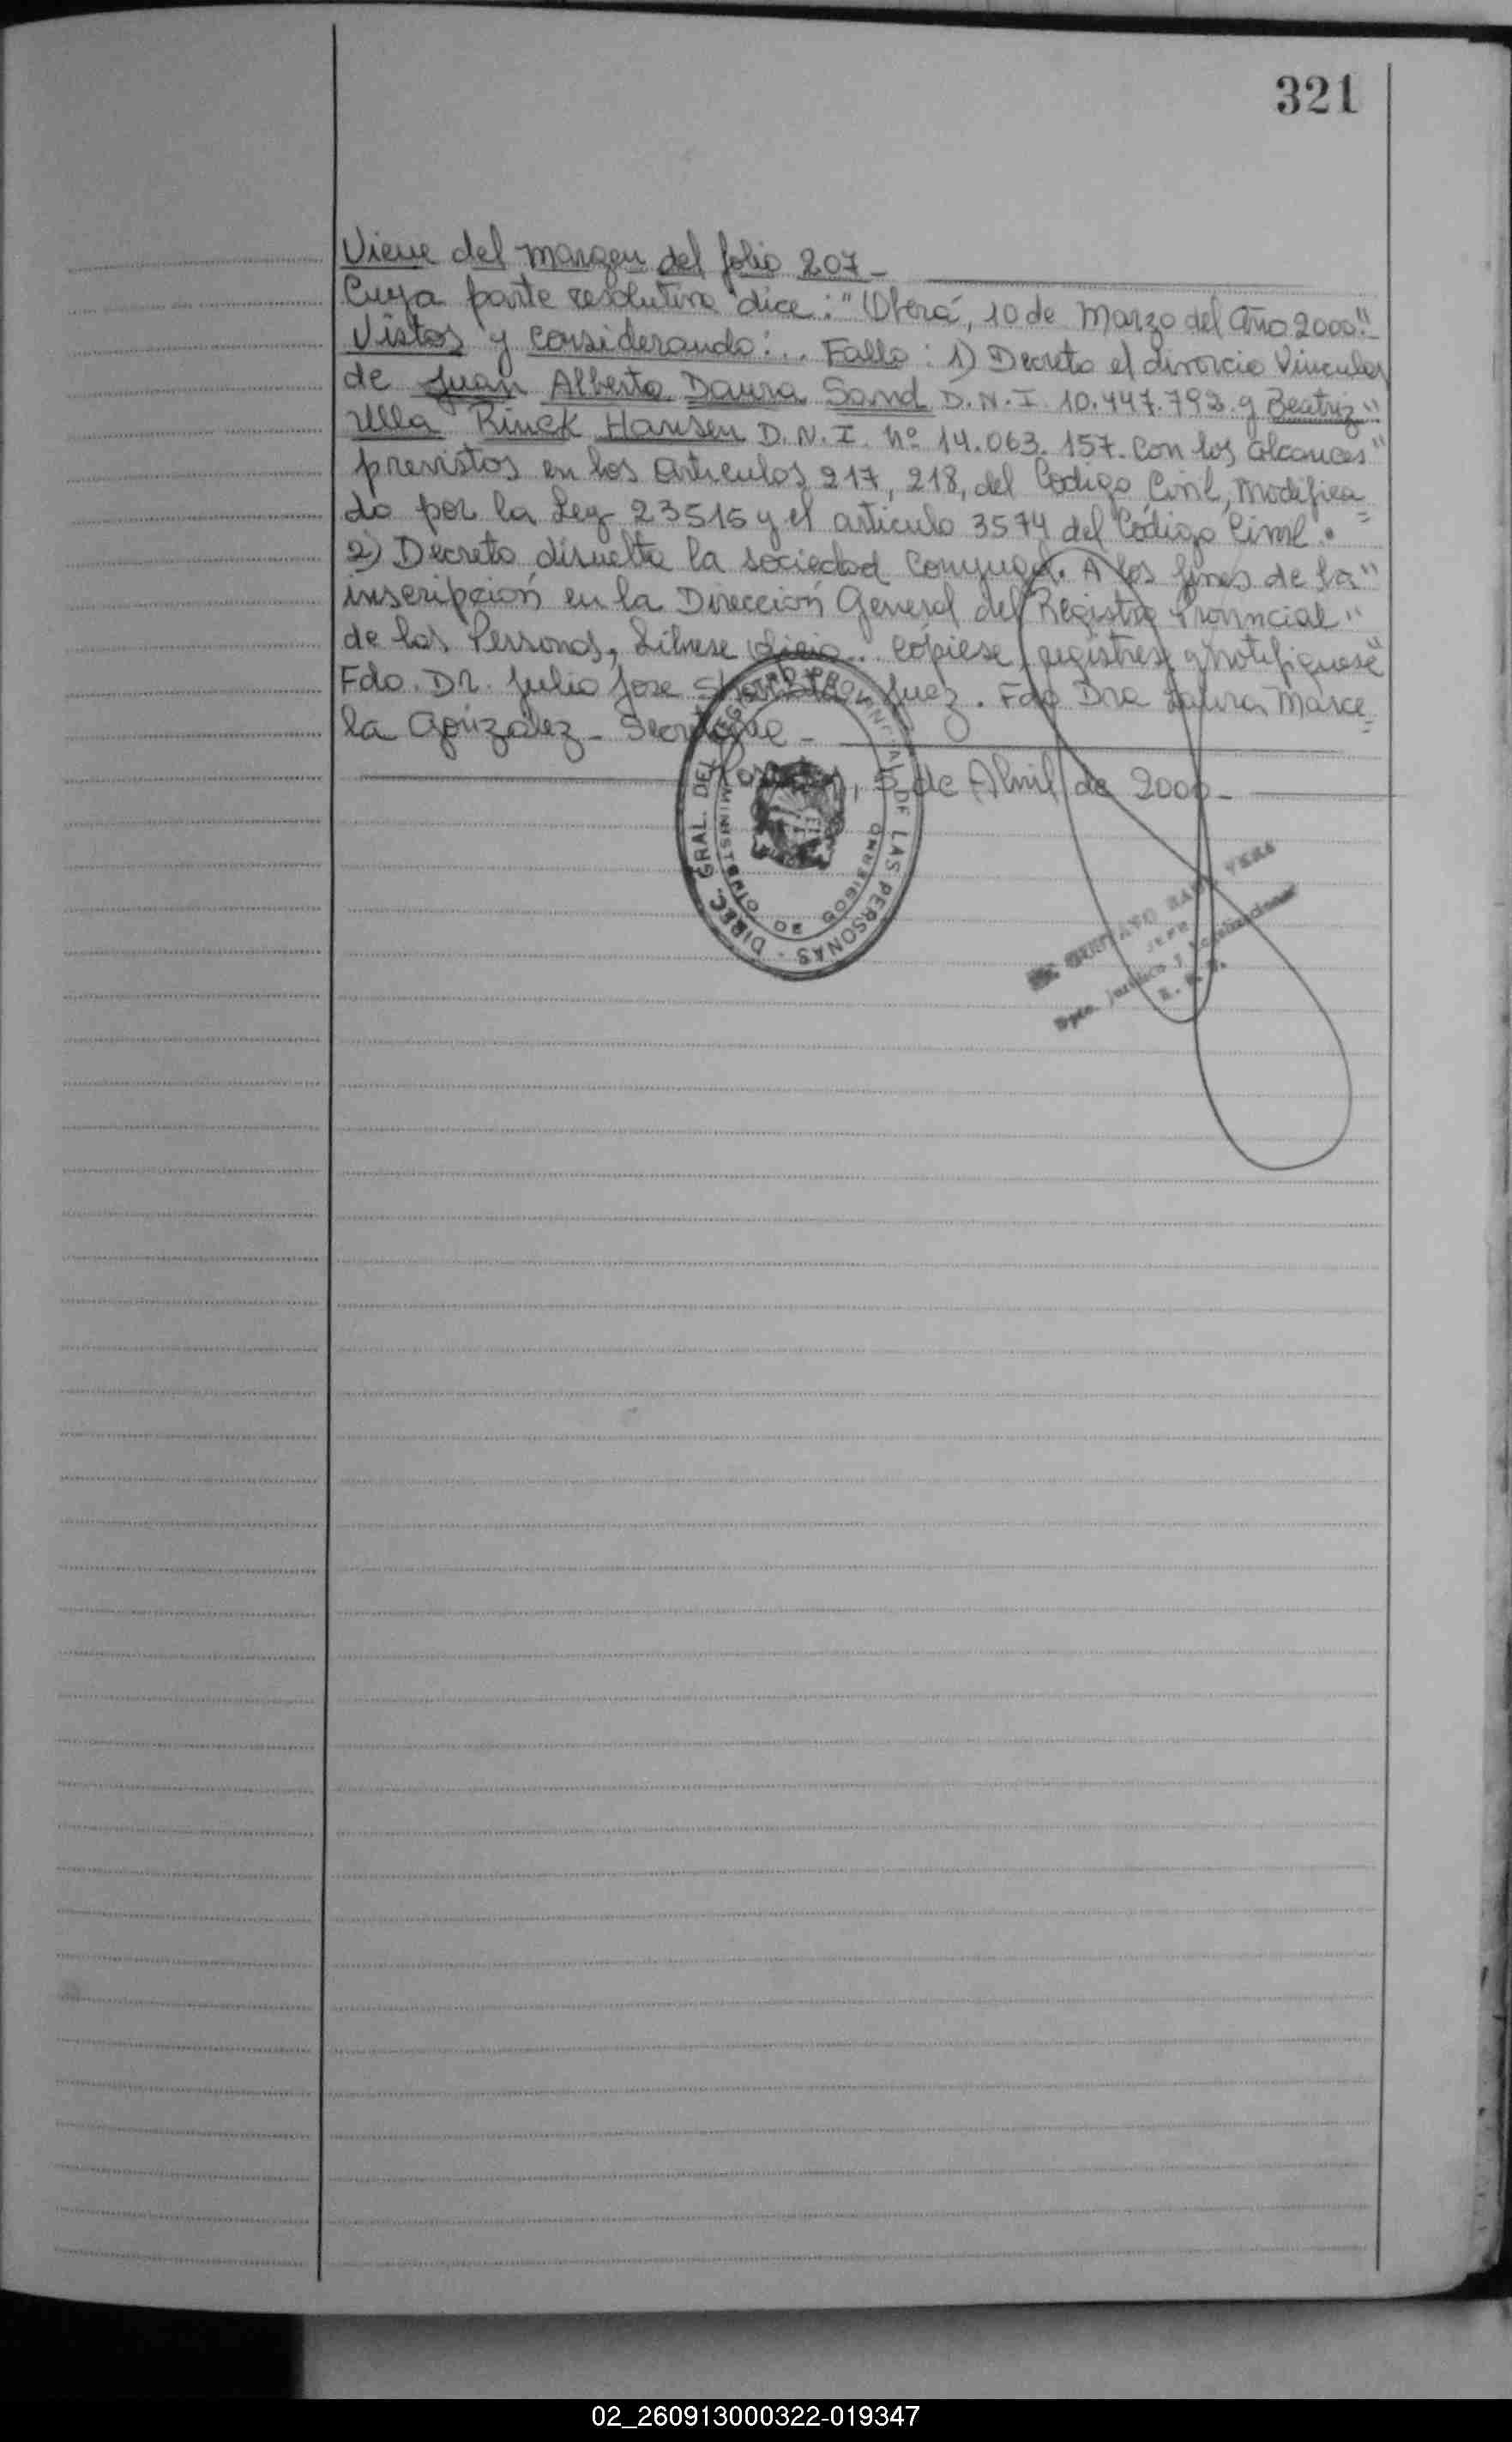 321
Viene del margen del folio 207-
Cuya parte resolutiva dice: "Oberá, 10 de Marzo del Año 2000."
Vistos y Considerando:.. Fallo: 1) Decreto el divorcio Vincular
de Juan Alberto Daura Sand D.N.I. 10.447.792. y Beatriz"
Ulla Rinck Hansen D.N.I. nº 14.063.157. Con los alcances"
previstos en los articulos 217, 218, del Codigo Civil, Modifica
do por la Ley 23515 y el articulo 3574 del Código Civil.
2) Decreto disuelta la sociedad Conyugal. A los fines de la"
inscripción en la Dirección General del Registro Provincial"
de las Personas, Líbrese oficio... Cópiese, registrese y notifiquese"
Fdo. Dr. Julio Jose Juez. Fdo Dra Laura Marce
la González - Secretaria -
Posadas, 5 de Abril de 2000-
DIREC. GRAL. DEL REGISTRO PROVINCIAL DE LAS PERSONAS -
MINISTERIO DE GOBIERNO
JEFE
02_260913000322-019347